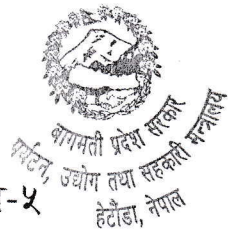 बागमती प्रदेश सरकार
पर्यटन, उद्योग तथा सहकारी मन्त्रालय
हेटौंडा, नेपाल
-५